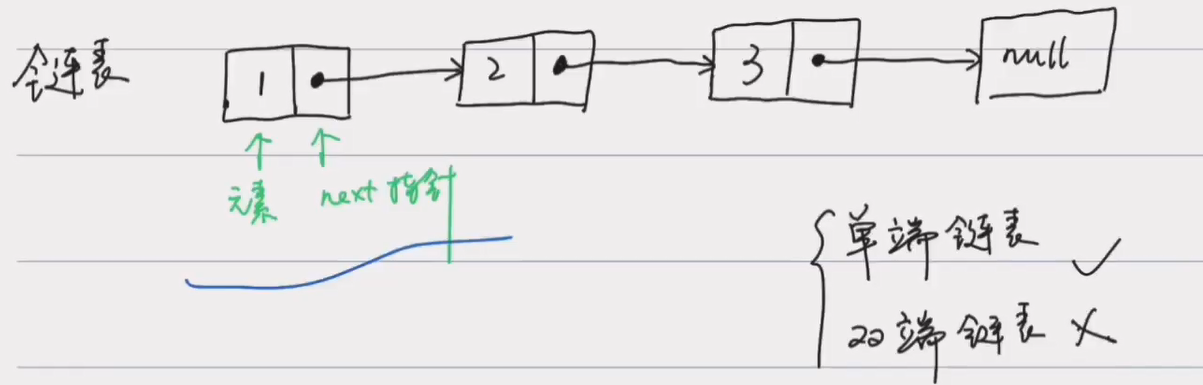 链表 1 2 3 null
元素 next 指针
单端链表 ✓
双端链表 ×